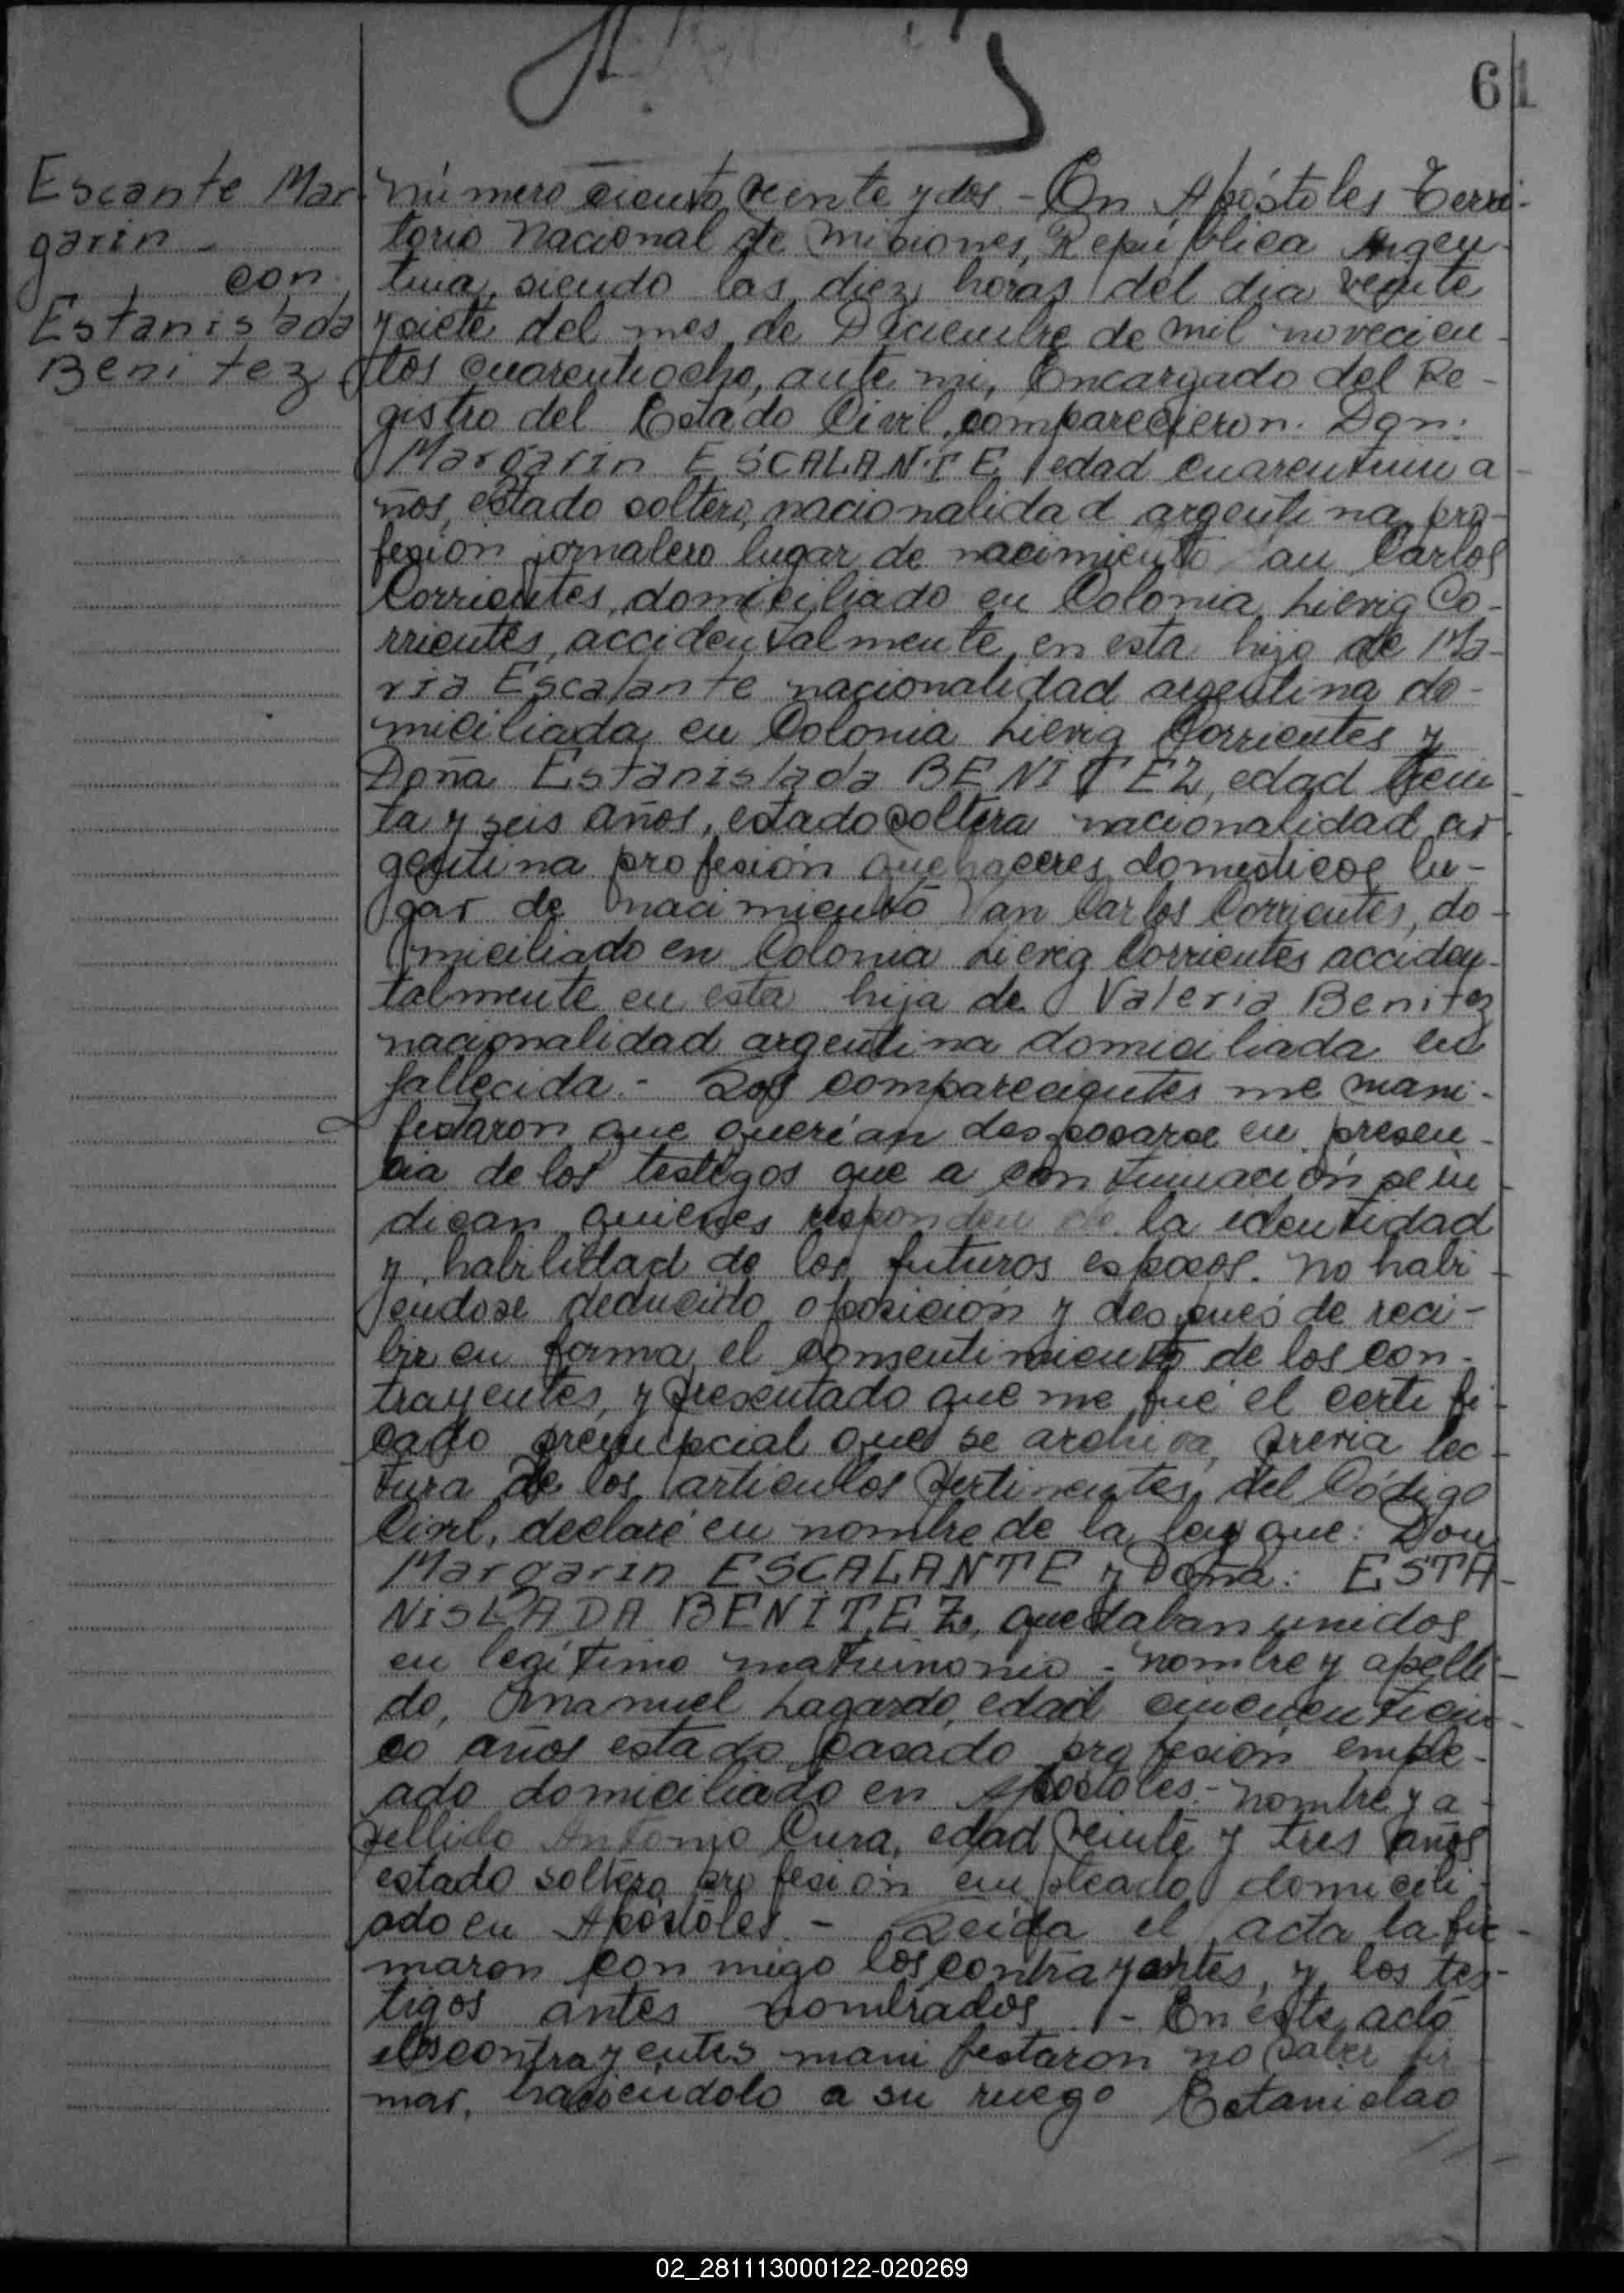 61
Escante Mar
garin -
con
Estanislada
Benitez
Número ciento veinte y dos - En Apóstoles Terri-
torio Nacional de Misiones, República Argen-
tina, siendo las diez horas del dia veinte
y siete del mes de Diciembre de mil novecien-
tos cuarentiocho, ante mi, Encargado del Re-
gistro del Estado Civil, comparecieron. Don:
Margarin ESCALANTE, edad cuarentiun a-
ños, estado soltero, nacionalidad argentina, pro-
fesion jornalero lugar de nacimiento San Carlos
Corrientes, domiciliado en Colonia Liewig Co-
rrientes, accidentalmente en esta hijo de Ma-
ria Escalante nacionalidad argentina do-
miciliada en Colonia Liewig Corrientes y
Doña Estanislada BENITEZ, edad trein-
ta y seis años, estado soltera nacionalidad ar-
gentina profesión quehaceres domesticos lu-
gar de nacimiento San Carlos Corrientes, do-
miciliado en Colonia Liewig Corrientes acciden-
talmente en esta hija de Valeria Benitez
nacionalidad argentina domiciliada en
fallecida. - Los comparecientes me mani-
festaron que querían desposarse en presen-
cia de los testigos que a continuación se in-
dican quienes responden de la identidad
y habilidad de los futuros esposos. No habi-
endose deducido oposición y después de reci-
bir en forma el consentimiento de los con-
trayentes, y presentado que me fué el certifi-
cado prenupcial que se archiva, previa lec-
tura de los articulos pertinentes del Código
Civil, declaré en nombre de la ley que: Don
Margarin ESCALANTE y Doña: ESTA-
NISLADA BENITEZ, quedaban unidos
en legítimo matrimonio - nombre y apelli-
do, Manuel Lagardo, edad cincuenticin-
co años estado casado profesión emple-
ado domiciliado en Apóstoles. - nombre y a-
pellido Antonio Cura, edad veinte y tres años
estado soltero profesión empleado domicili-
ado en Apóstoles. - Leida el acta la fir-
maron conmigo los contrayentes, y los tes-
tigos antes nombrados. - En este acto
los contrayentes manifestaron no saber fir-
mar, haciendolo a su ruego Estanislao
02_281113000122-020269